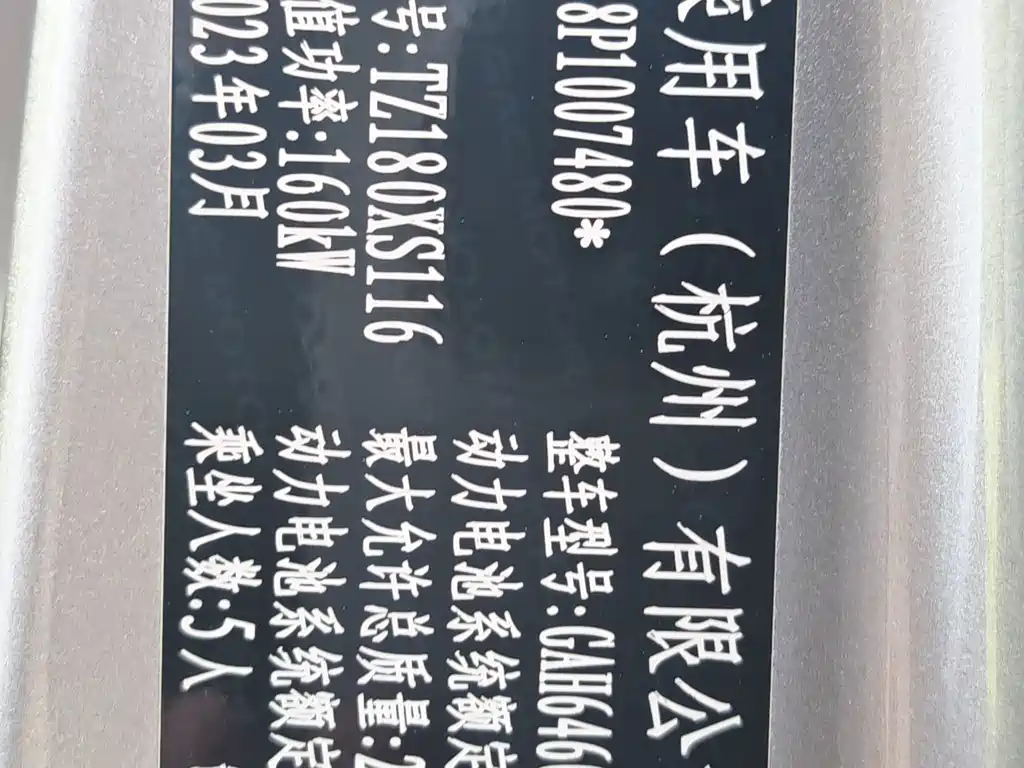 用车（杭州）有限公
8P1007480* 整车型号:GAH646
动力电池系统额定
号:TZ180XS116 最大允许总质量:2
值功率:160kW 动力电池系统额定
023年03月 乘坐人数:5人